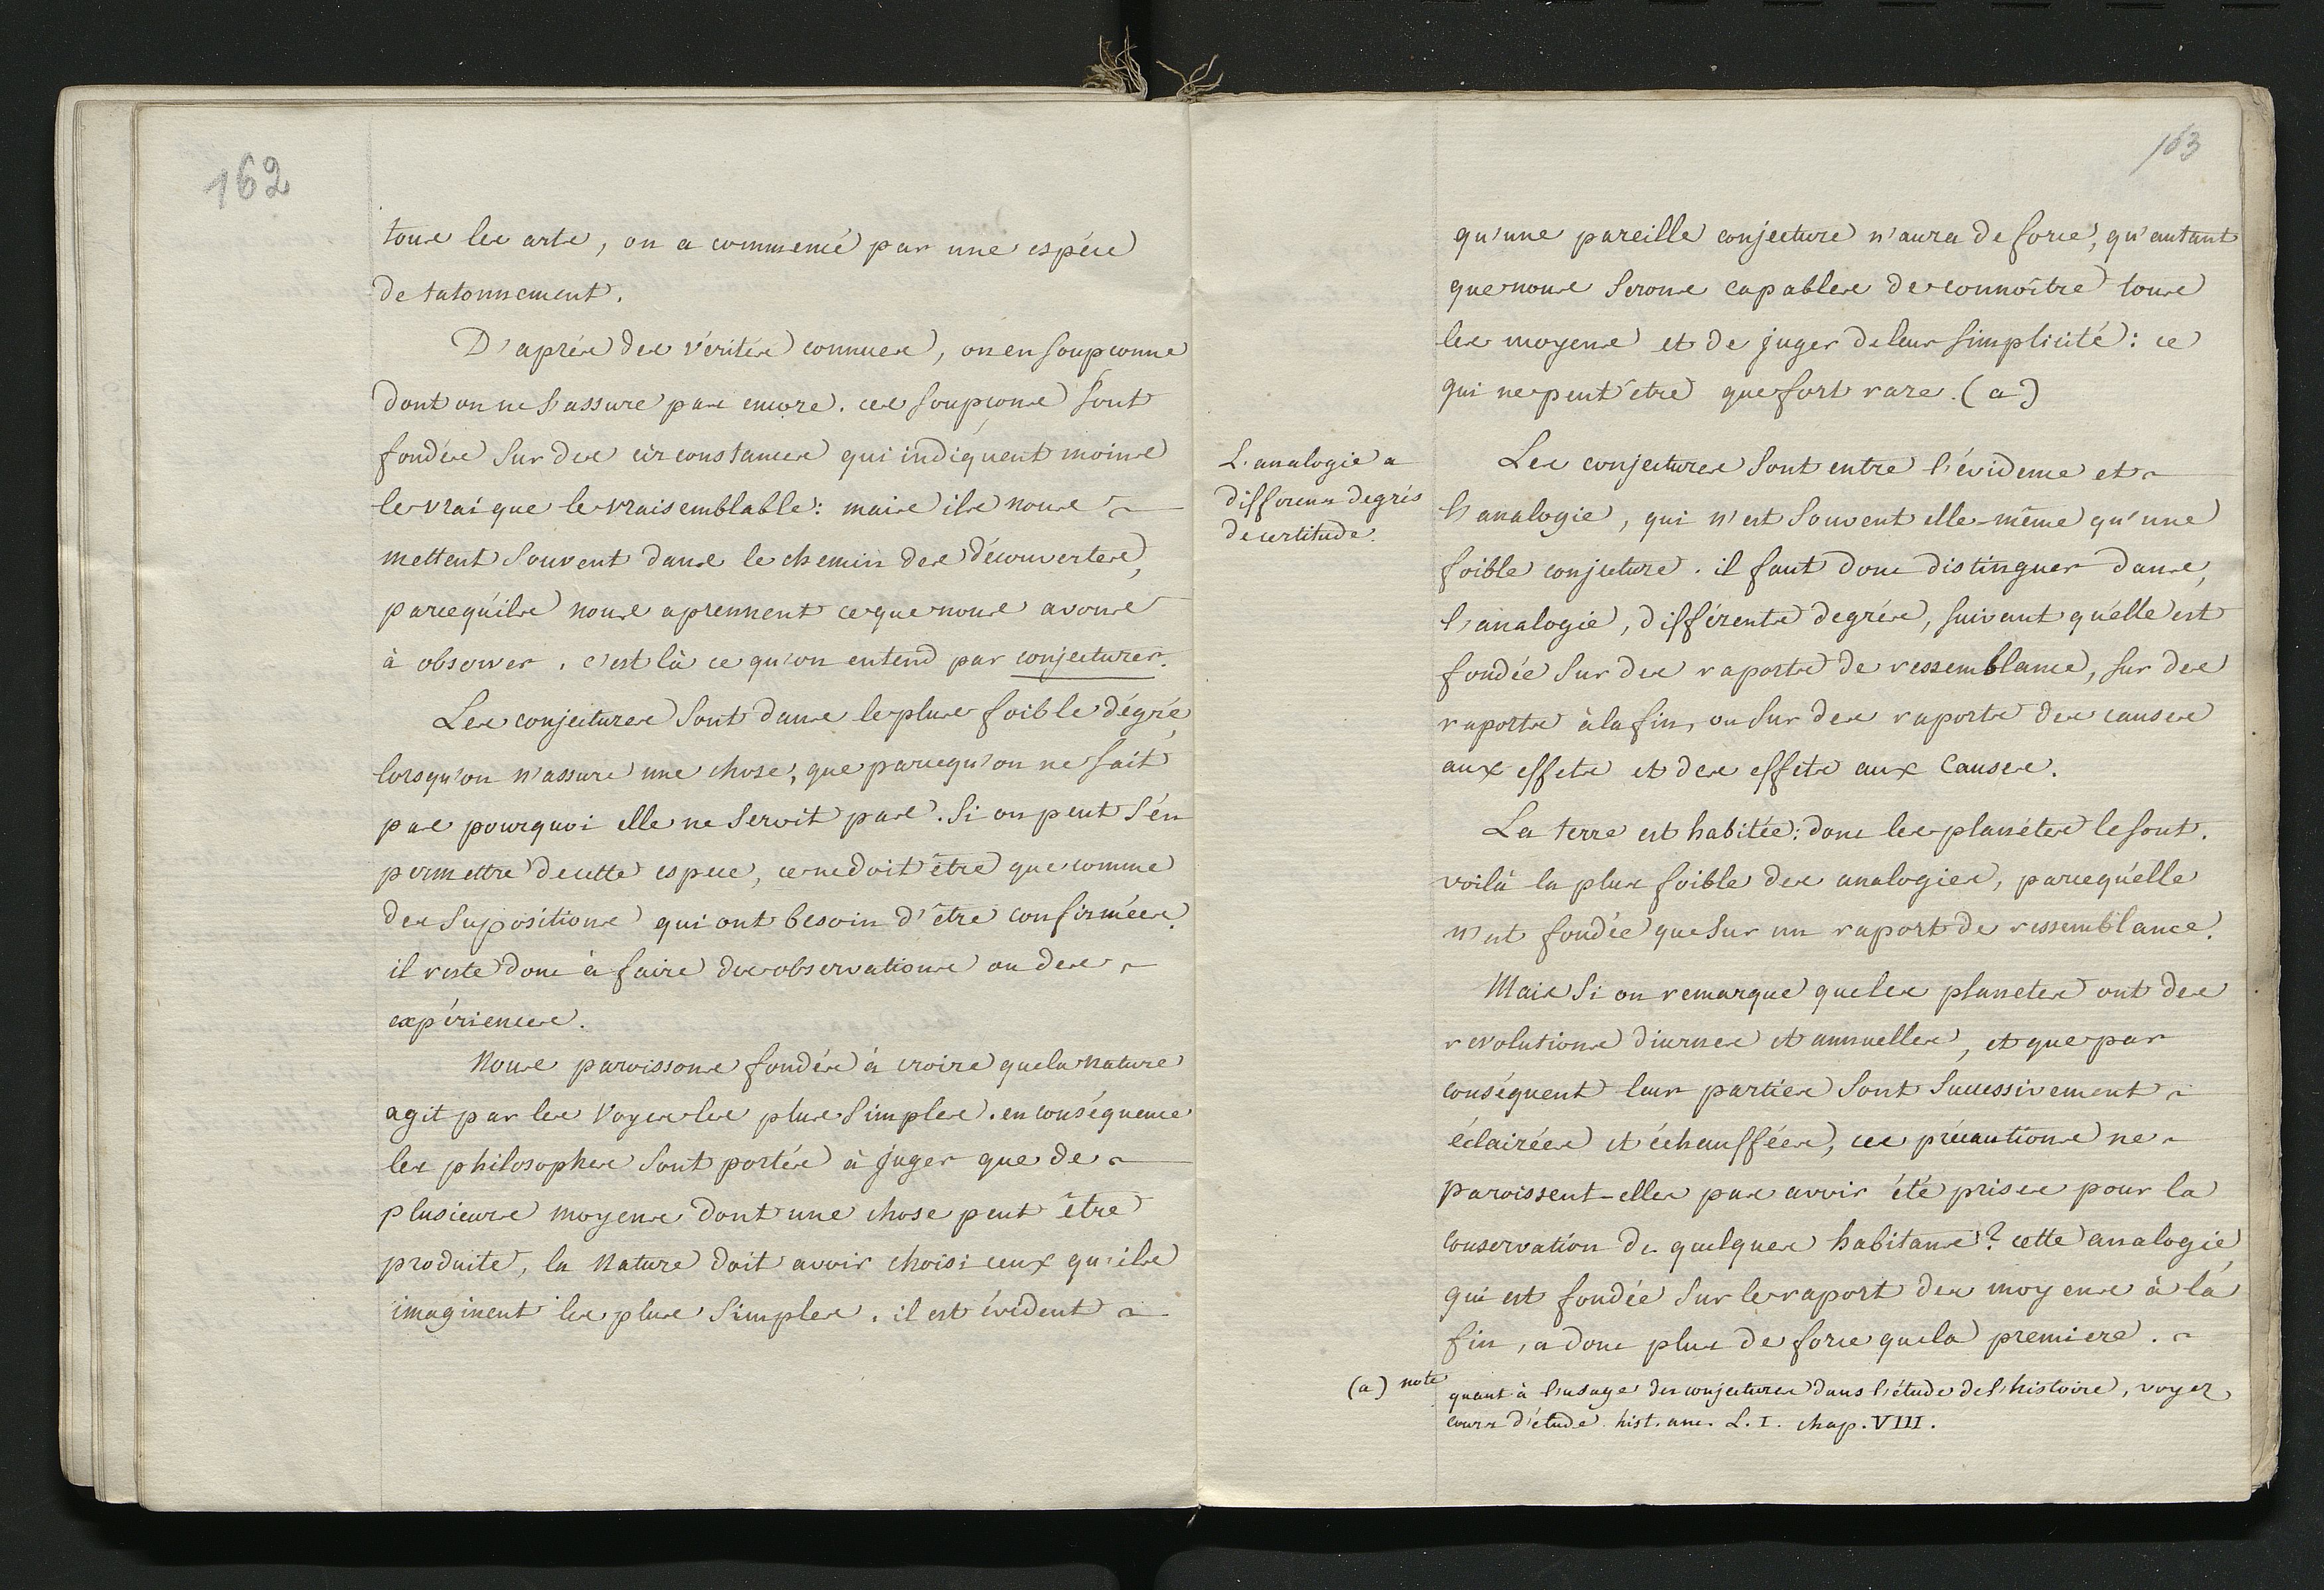 162
tous les arts, on a commencé par une espéce
de tatonnement.
D'après des vérités connues, on en soupçonne
dont on ne s'assure pas encore. ces soupçons sont
fondés sur des circonstances qui indiquent moins
le vrai que le vraisemblable: mais ils nous
mettent souvent dans le chemin des découvertes,
parcequ'ils nous aprennent ce que nous avons
à observer. c'est là ce qu'on entend par conjecturer.
Les conjectures sont dans le plus foible dégré,
lorsqu'on n'assure une chose, que parcequ'on ne sait
pas pourquoi elle ne seroit pas. Si on peut s'en
permettre de cette espece, ce ne doit être que comme
des supositions qui ont besoin d'être confirmées.
il reste donc à faire des observations ou des
expériences.
Nous paroissons fondés à croire que la nature
agit par les voyes les plus simples. en conséquence
les philosophes sont portés à juger que de
plusieurs moyens dont une chose peut être
produite, la nature doit avoir choisi ceux qu'ils
imaginent les plus simples. il est évident
163
qu'une pareille conjecture n'aura de force, qu'autant
que nous serons capables de connoître tous
les moyens et de juger de leur simplicité: ce
qui ne peut être que fort rare. (a)
L'analogie a
differens degrés
de certitude.
Les conjectures sont entre l'évidence et
l'analogie, qui n'est souvent elle-même qu'une
foible conjecture. il faut donc distinguer dans,
l'analogie, différents degrés, suivant qu'elle est
fondée sur des raports de ressemblance, sur des
raports à la fin, ou sur des raports des causes
aux effets et des effets aux causes.
La terre est habitée: donc les planétes le sont.
voilà la plus foible des analogies, parcequ'elle
n'est fondée que sur un raport de ressemblance.
Mais si on remarque que les planetes ont des
revolutions diurnes et annuelles, et que par
conséquent leur parties sont successivement
éclairées et échauffées, ces précautions ne
paroissent-elles pas avoir été prises pour la
conservation de quelques habitans? cette analogie,
qui est fondée sur le raport des moyens à la
fin, a donc plus de force que la premiere.
(a) note quant à l'usage des conjectures dans l'étude de l'histoire, voyez
cours d'étude hist. anc. L. I. chap. VIII.